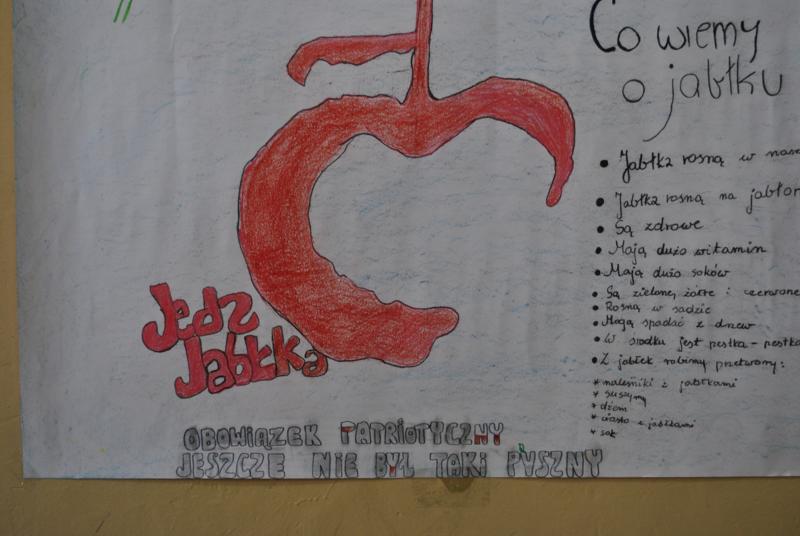 Co wiemy
o jabłku
• Jabłka rosną w
• Jabłka rosną na
• Są zdrowe
• Mają dużo witamin
• Mają dużo soków
• Są zielone, żółte i czerwone
• Rosną w sadzie
• Mogą spadać z drzew
• W środku jest pestka -
• Z jabłek robimy przetwory:
* naleśniki z jabłkami
* suszymy
* dżem
* ciasto z jabłkami
* sok
Jedz
Jabłka
OBOWIĄZEK PATRIOTYCZNY
JESZCZE NIE BYŁ TAKI PYSZNY